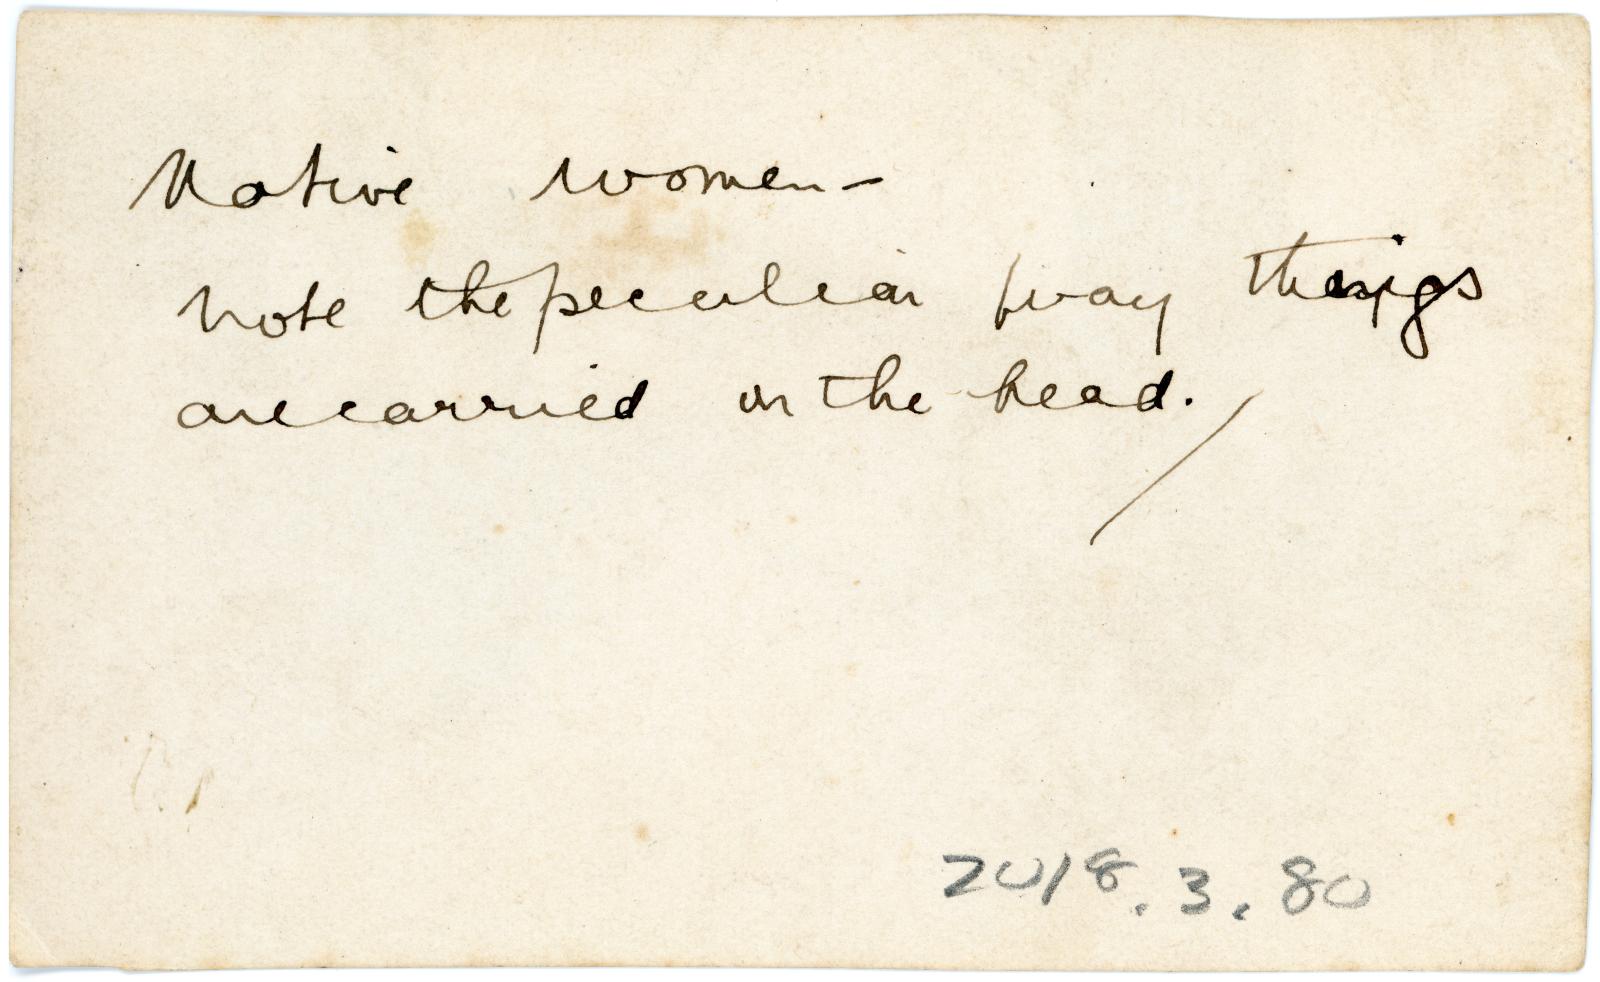 Native women-
Note the peculiar way things
are carried on the head.
2018.3.80